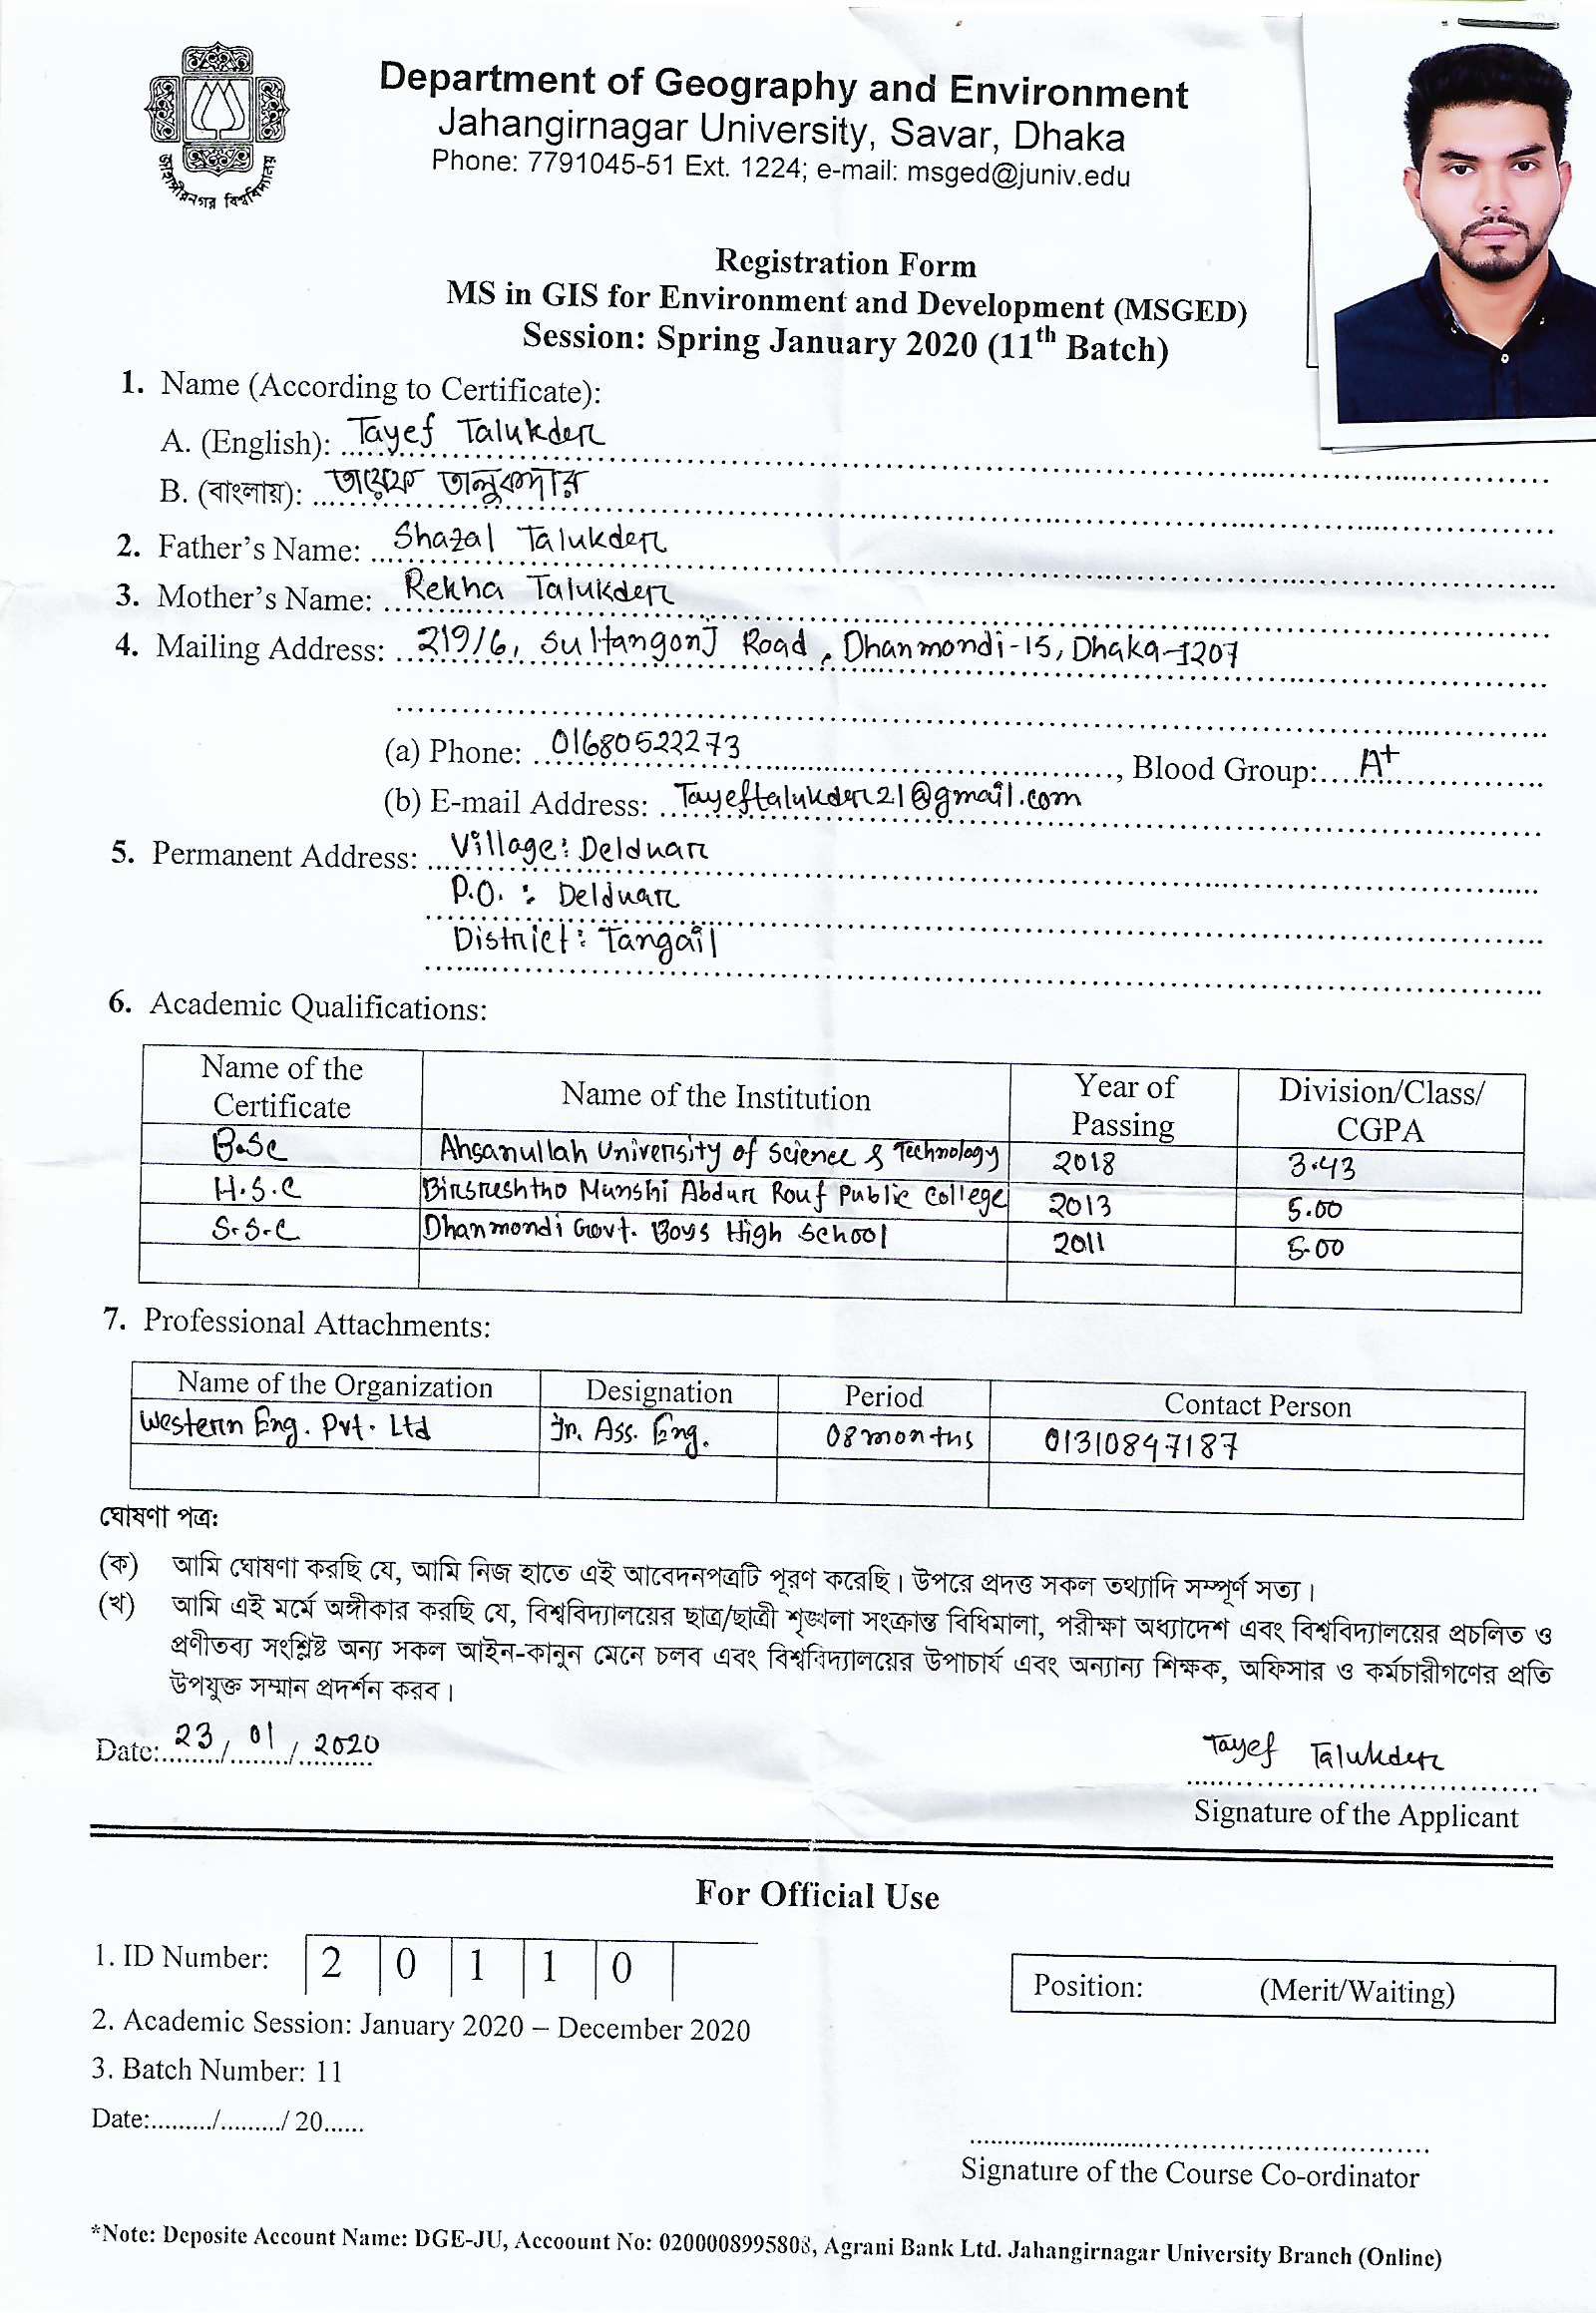 জাহাঙ্গীরনগর বিশ্ববিদ্যালয়
Department of Geography and Environment
Jahangirnagar University, Savar, Dhaka
Phone: 7791045-51 Ext. 1224; e-mail: msged@juniv.edu
Registration Form
MS in GIS for Environment and Development (MSGED)
Session: Spring January 2020 (11th Batch)
1. Name (According to Certificate):
A. (English): Tayef Talukder
B. (বাংলায়): তায়েফ তালুকদার
2. Father's Name: Shazal Talukder
3. Mother's Name: Rekha Talukder
4. Mailing Address: 219/6, Sultangonj Road, Dhanmondi-15, Dhaka-1207
(a) Phone: 01680522273, Blood Group: A+
(b) E-mail Address: Tayeftalukder21@gmail.com
5. Permanent Address: Village: Delduar
P.O. : Delduar
District: Tangail
6. Academic Qualifications:
Name of the Certificate Name of the Institution Year of Passing Division/Class/CGPA
B.Sc Ahsanullah University of Science & Technology 2018 3.43
H.S.C Birsreshtho Munshi Abdur Rouf Public College 2013 5.00
S.S.C Dhanmondi Govt. Boys High School 2011 5.00
7. Professional Attachments:
Name of the Organization Designation Period Contact Person
Western Eng. Pvt. Ltd Jr. Ass. Eng. 08 months 01310847187
ঘোষণা পত্র:
(ক) আমি ঘোষণা করছি যে, আমি নিজ হাতে এই আবেদনপত্রটি পূরণ করেছি। উপরে প্রদত্ত সকল তথ্যাদি সম্পূর্ণ সত্য।
(খ) আমি এই মর্মে অঙ্গীকার করছি যে, বিশ্ববিদ্যালয়ের ছাত্র/ছাত্রী শৃঙ্খলা সংক্রান্ত বিধিমালা, পরীক্ষা অধ্যাদেশ এবং বিশ্ববিদ্যালয়ের প্রচলিত ও
প্রণীতব্য সংশ্লিষ্ট অন্য সকল আইন-কানুন মেনে চলব এবং বিশ্ববিদ্যালয়ের উপাচার্য এবং অন্যান্য শিক্ষক, অফিসার ও কর্মচারীগণের প্রতি
উপযুক্ত সম্মান প্রদর্শন করব।
Date: 23/01/2020
Tayef Talukder
Signature of the Applicant
For Official Use
1. ID Number: 2 0 1 1 0
Position: (Merit/Waiting)
2. Academic Session: January 2020 – December 2020
3. Batch Number: 11
Date:........./........./ 20......
Signature of the Course Co-ordinator
*Note: Deposite Account Name: DGE-JU, Accoount No: 0200008995808, Agrani Bank Ltd. Jahangirnagar University Branch (Online)